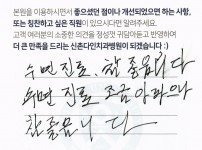 본원을 이용하시면서 좋으셨던 점이나 개선되었으면 하는 사항,
또는 칭찬하고 싶은 직원이 있으시다면 알려주세요.
고객 여러분의 소중한 의견을 정성껏 귀담아듣고 반영하여
더 큰 만족을 드리는 신촌다인치과병원이 되겠습니다 :)
수면 진료. 참 좋읍니다
수면 진료 조금
참 좋읍니다